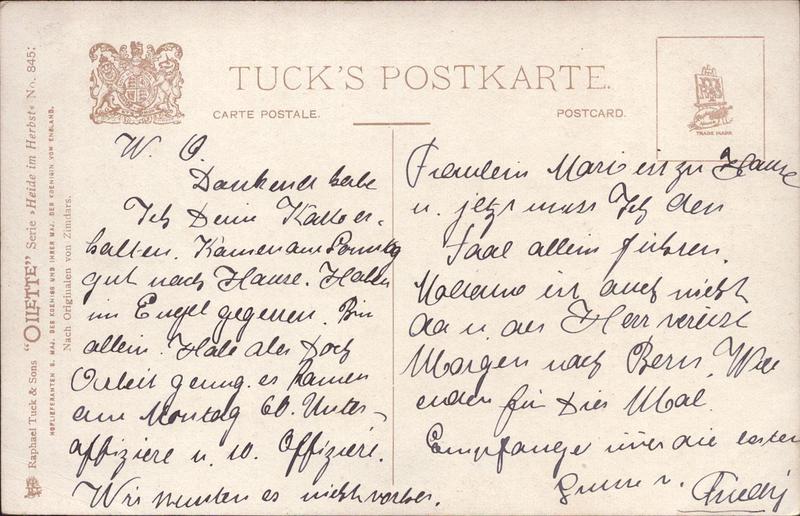 TUCK'S POSTKARTE.
CARTE POSTALE.
POSTCARD.
TRADE MARK
Raphael Tuck & Sons "OILETTE" Serie »Heide im Herbst« No. 845.
HOFLIEFERANTEN S. MAJ. DES KOENIGS UND IHRER MAJ. DER KOENIGIN VON ENGLAND.
Nach Originalen von Zimdars.
W. O.
Dankend habe
Ich Deine Karte er-
halten. Kamen am Sonntag
gut nach Hause. Haben
im Engel gegessen. Bin
allein. Habe aber Doch
Arbeit genug. es kamen
am Montag 60. Unter-
offiziere u. 10. Offiziere.
Wir wussten es nicht vorher.
Fräulein Marie ist zu Hause
u. jetzt muss Ich den
Saal allein führen.
Madame ist auch nicht
da u. der Herr verreist
Morgen nach Bern. Wir
enden für Dies Mal
Empfange nur die besten
Grüsse v.